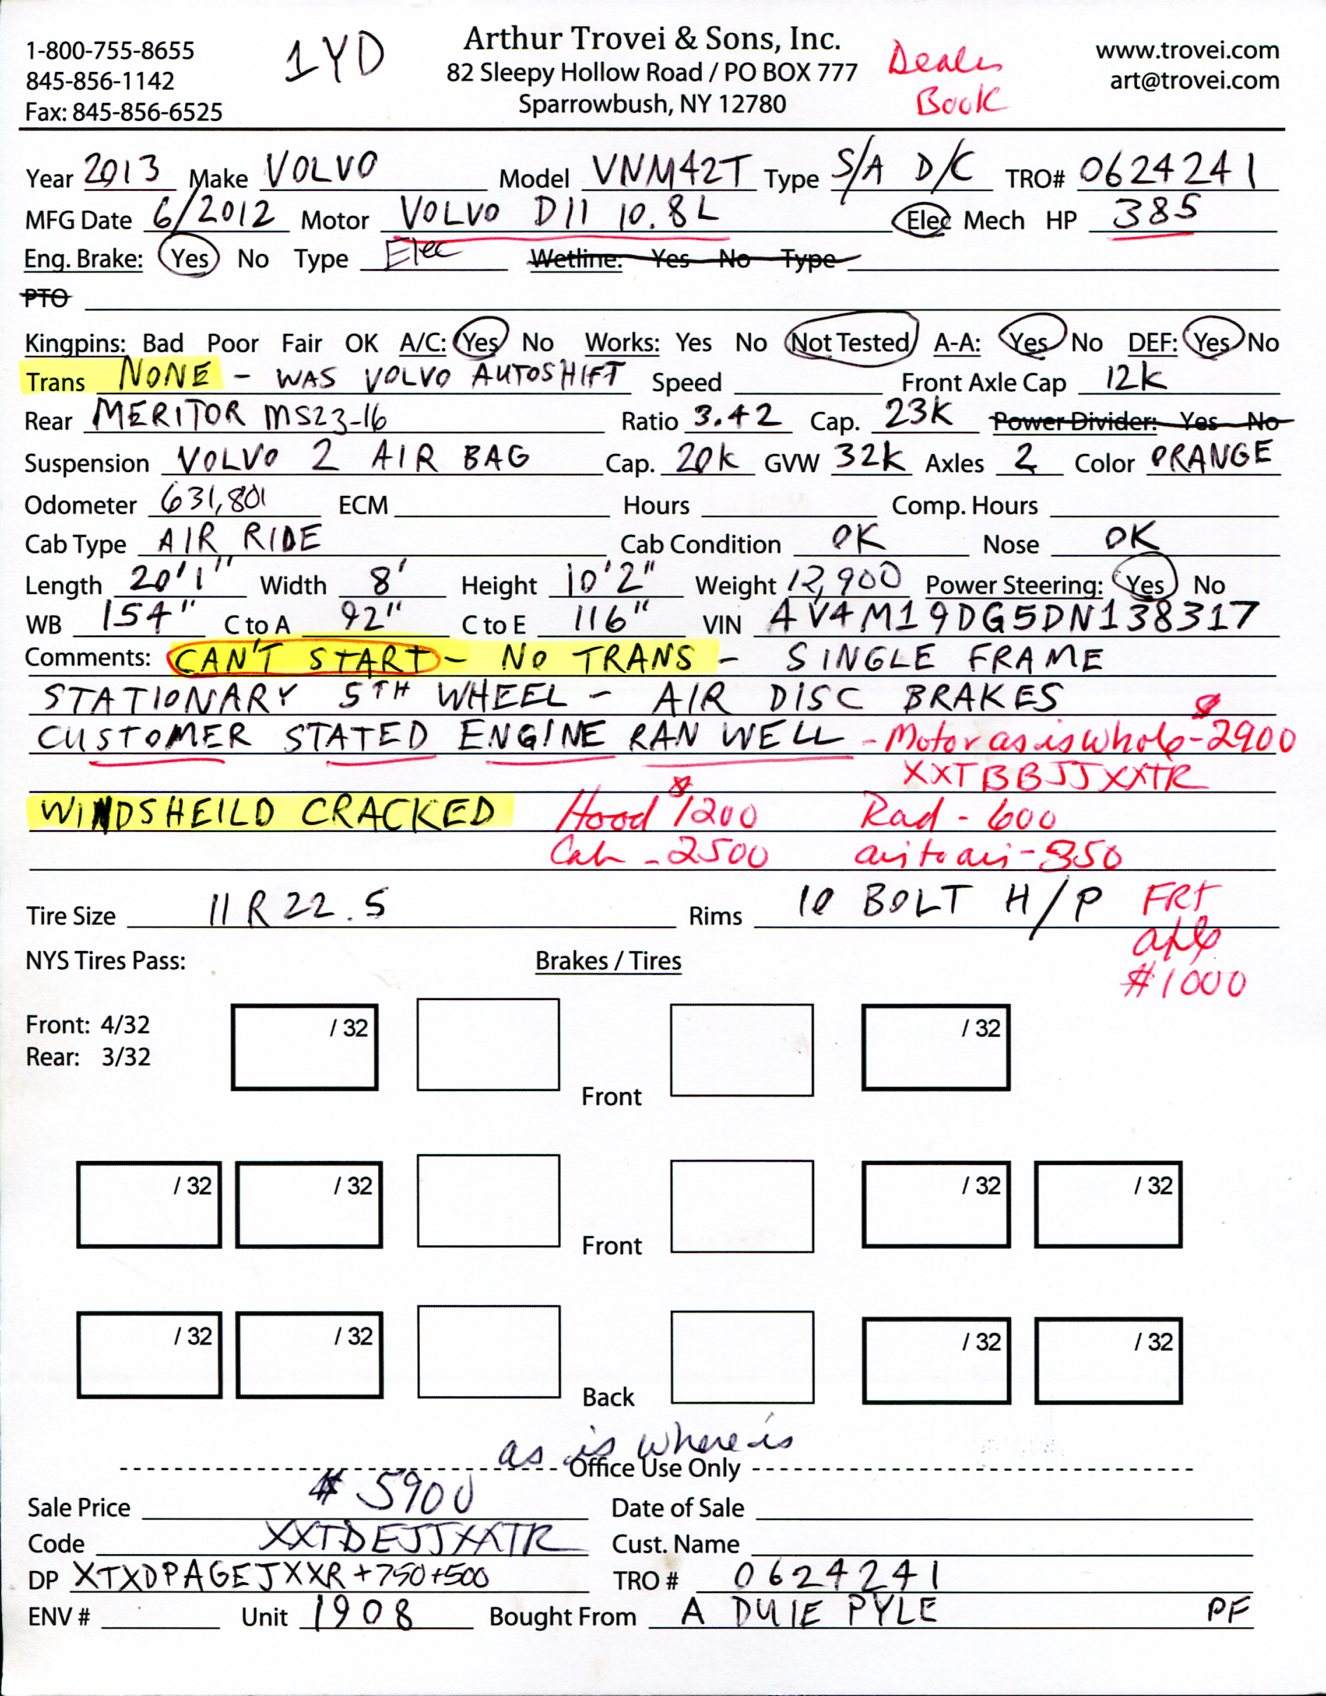 1-800-755-8655
845-856-1142
Fax: 845-856-6525
1YD
Arthur Trovei & Sons, Inc.
82 Sleepy Hollow Road / PO BOX 777
Sparrowbush, NY 12780
Dealer
Book
www.trovei.com
art@trovei.com
Year 2013 Make VOLVO Model VNM42T Type S/A D/C TRO# 0624241
MFG Date 6/2012 Motor VOLVO D11 10.8L Elec Mech HP 385
Eng. Brake: Yes No Type Elec Wetline: Yes No Type
PTO
Kingpins: Bad Poor Fair OK A/C: Yes No Works: Yes No Not Tested A-A: Yes No DEF: Yes No
Trans NONE - WAS VOLVO AUTOSHIFT Speed Front Axle Cap 12K
Rear MERITOR MS23-16 Ratio 3.42 Cap. 23K Power Divider: Yes No
Suspension VOLVO 2 AIR BAG Cap. 20K GVW 32K Axles 2 Color ORANGE
Odometer 631,801 ECM Hours Comp. Hours
Cab Type AIR RIDE Cab Condition OK Nose OK
Length 20'1" Width 8' Height 10'2" Weight 12,900 Power Steering: Yes No
WB 154" C to A 92" C to E 116" VIN 4V4M19DG5DN138317
Comments: CAN'T START - NO TRANS - SINGLE FRAME
STATIONARY 5TH WHEEL - AIR DISC BRAKES
CUSTOMER STATED ENGINE RAN WELL - Motor as is whole - $2900
XXTBBJJXXTR
WINDSHEILD CRACKED Hood $1200 Rad - 600
Cab - 2500 air to air - 350
Tire Size 11R22.5 Rims 10 BOLT H/P FRT
axle
#1000
NYS Tires Pass: Brakes / Tires
Front: 4/32
Rear: 3/32
/ 32 / 32
Front
/ 32 / 32 / 32 / 32
Front
/ 32 / 32 / 32 / 32
Back
as is where is
Office Use Only
Sale Price $5900 Date of Sale
Code XXTDEJJXXTR Cust. Name
DP XTXDPAGEJXXR+750+500 TRO # 0624241
ENV # Unit 1908 Bought From A DUIE PYLE PF